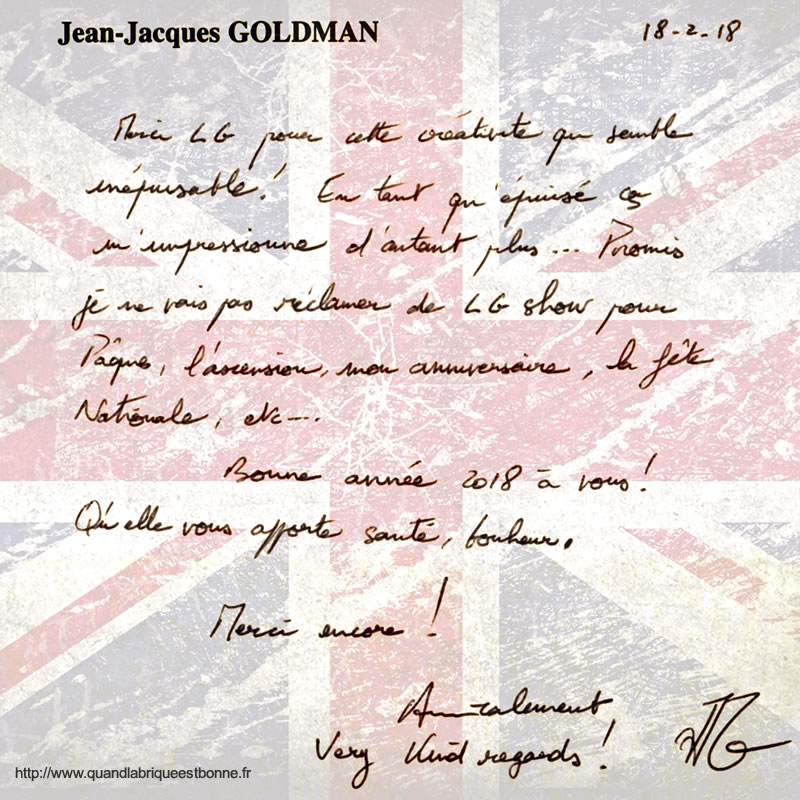 Jean-Jacques GOLDMAN 18-2-18
Merci LG pour cette créativité qui semble
inépuisable! En tant qu'épuisé ça
m'impressionne d'autant plus... Promis
je ne vais pas réclamer de LG show pour
Pâques, l'ascension, mon anniversaire, la fête
Nationale, etc...
Bonne année 2018 à vous!
Qu'elle vous apporte santé, bonheur.
Merci encore!
Amicalement
Very Kind regards!
JJG
http://www.quandlabriqueestbonne.fr